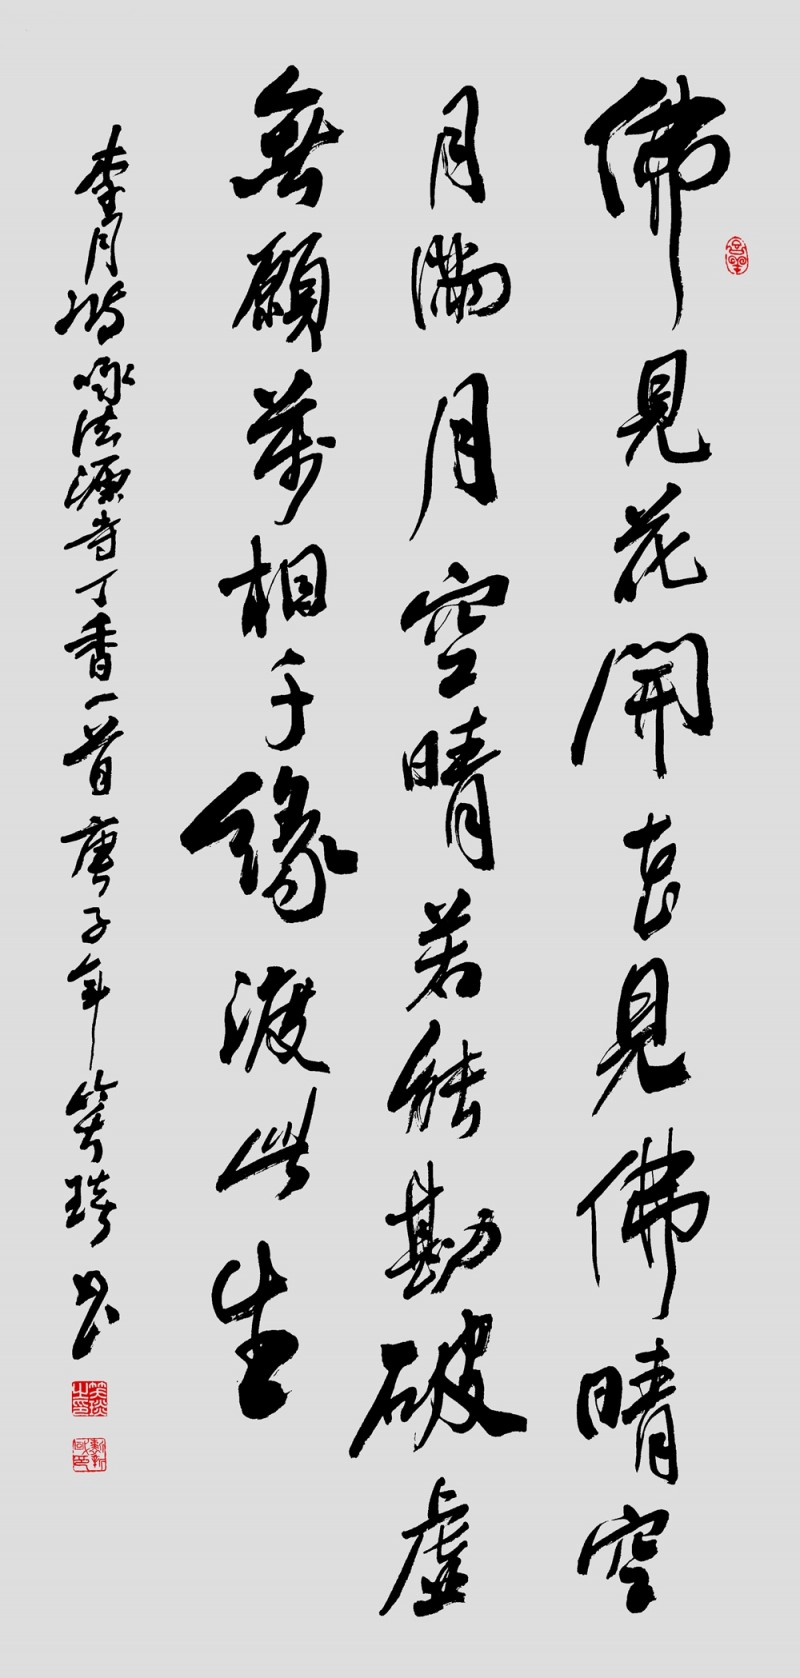 佛見花開花見佛晴空
月滿月空晴若能勘破虛
無願萬相千緣渡此生
李月潞咏法源寺丁香一首庚子年笑琰書